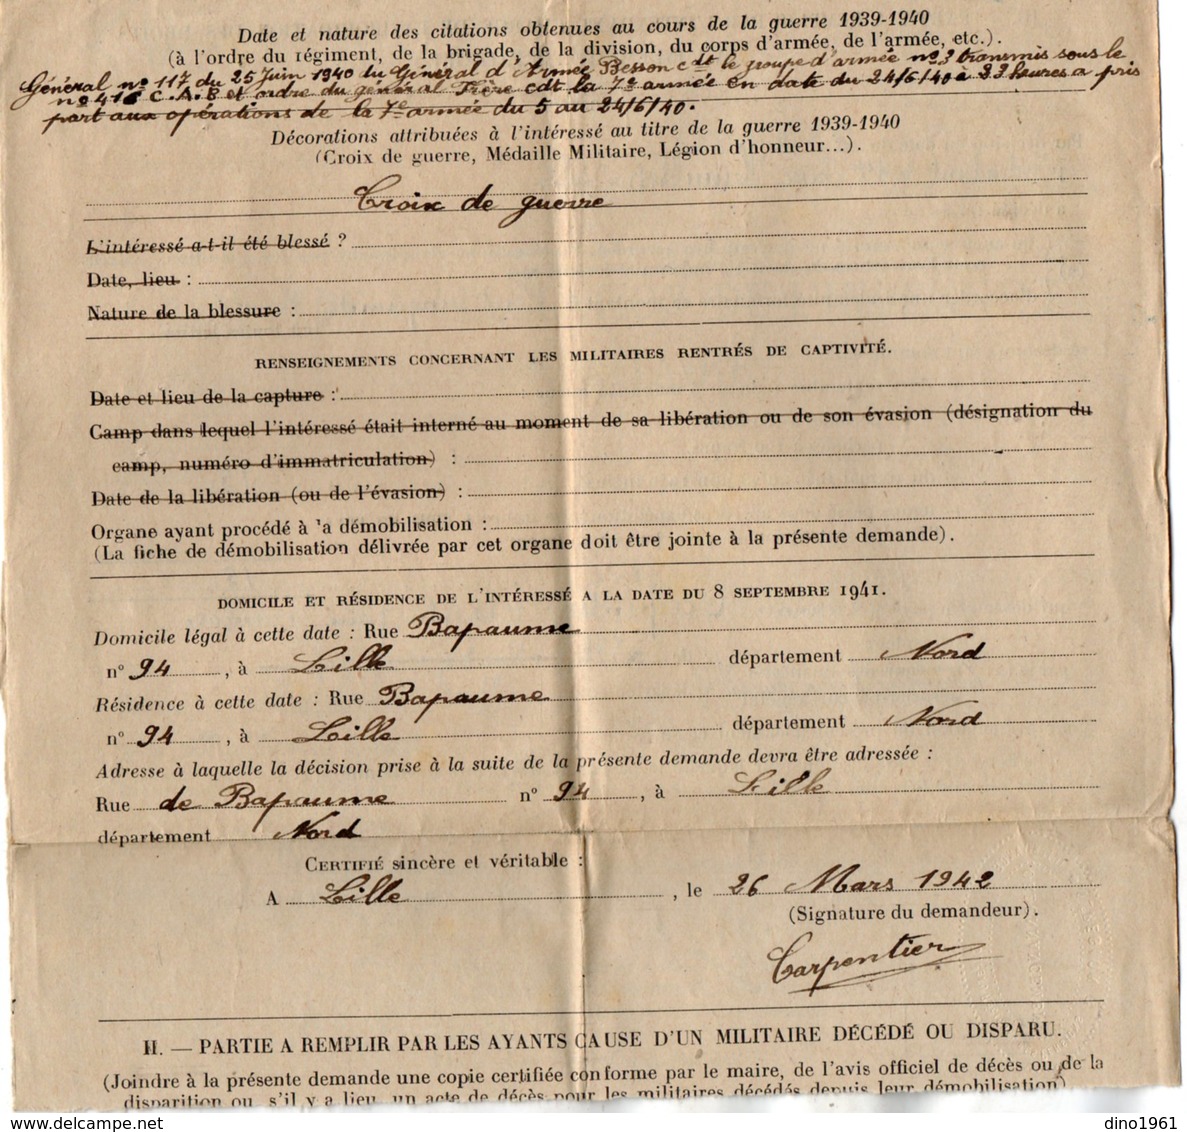 Date et nature des citations obtenues au cours de la guerre 1939-1940
(à l'ordre du régiment, de la brigade, de la division, du corps d'armée, de l'armée, etc.).
Général nº 117 du 25 Juin 1940 du Général d'Armée Besson cdt le groupe d'armée nº 3 transmis sous le
nº 416 C.A.B et ordre du général Frère cdt la 7e armée en date du 24/6/40 à 22 heures a pris
part aux opérations de la 7e armée du 5 au 24/6/40.
Décorations attribuées à l'intéressé au titre de la guerre 1939-1940
(Croix de guerre, Médaille Militaire, Légion d'honneur...).
Croix de guerre
L'intéressé a-t-il été blessé ?
Date, lieu :
Nature de la blessure :
RENSEIGNEMENTS CONCERNANT LES MILITAIRES RENTRÉS DE CAPTIVITÉ.
Date et lieu de la capture :
Camp dans lequel l'intéressé était interné au moment de sa libération ou de son évasion (désignation du
camp, numéro d'immatriculation) :
Date de la libération (ou de l'évasion) :
Organe ayant procédé à 'a démobilisation :
(La fiche de démobilisation délivrée par cet organe doit être jointe à la présente demande).
DOMICILE ET RÉSIDENCE DE L'INTÉRESSÉ A LA DATE DU 8 SEPTEMBRE 1941.
Domicile légal à cette date : Rue Bapaume
nº 94, à Lille département Nord
Résidence à cette date : Rue Bapaume
nº 94, à Lille département Nord
Adresse à laquelle la décision prise à la suite de la présente demande devra être adressée :
Rue de Bapaume nº 94, à Lille
département Nord
CERTIFIÉ sincère et véritable :
A Lille, le 26 Mars 1942
(Signature du demandeur).
Carpentier
II. — PARTIE A REMPLIR PAR LES AYANTS CAUSE D'UN MILITAIRE DÉCÉDÉ OU DISPARU.
(Joindre à la présente demande une copie certifiée conforme par le maire, de l'avis officiel de décès ou de la
disparition ou, s'il y a lieu, un acte de décès pour les militaires décédés depuis leur démobilisation)
dino1961